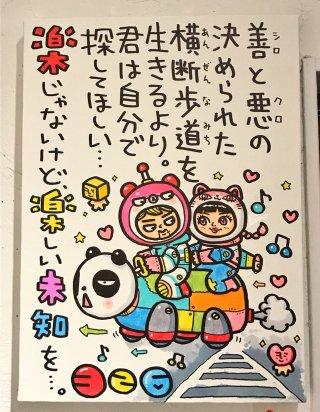 善と悪の
シロ クロ
決められた
横断歩道を
あんぜんなみち
生きるより。
君は自分で
探してほしい…
楽じゃないけど、楽しい未知を…。